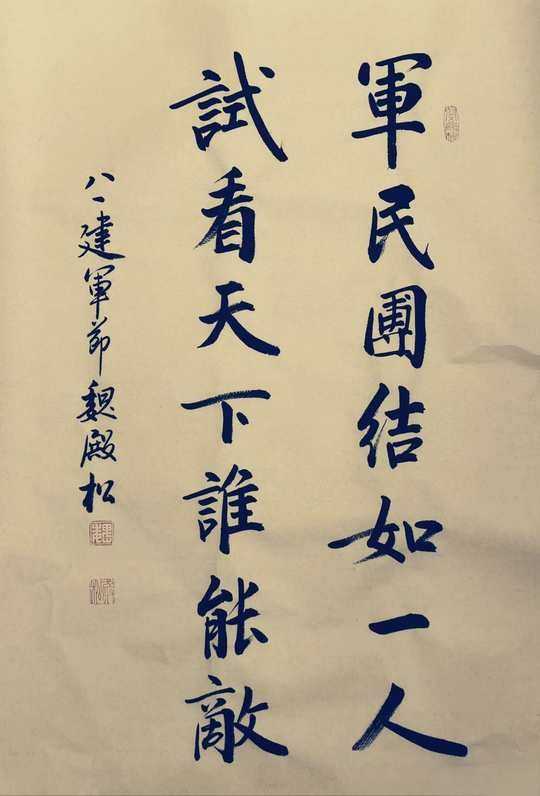 軍民團結如一人
試看天下誰能敵
八一建軍節魏殿松